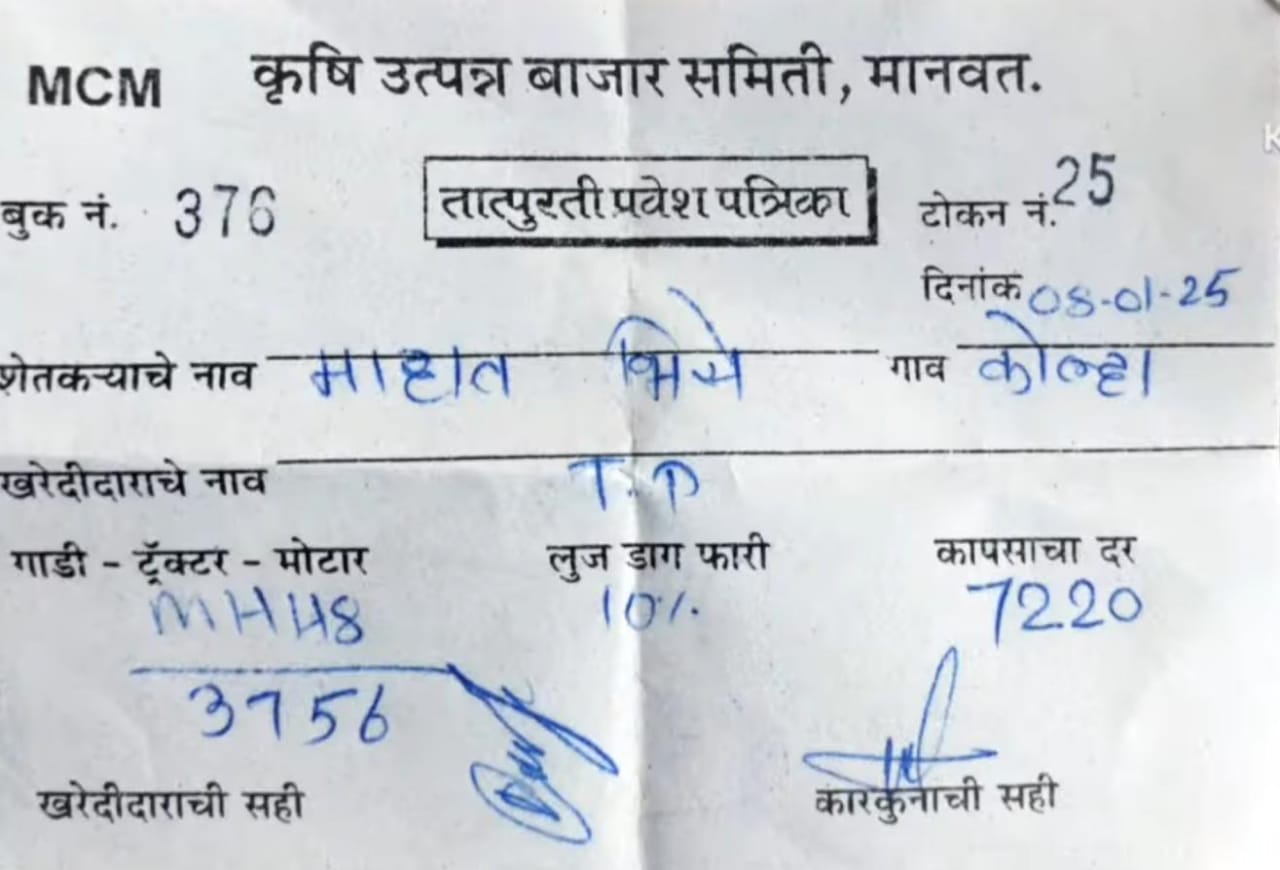 MCM कृषि उत्पन्न बाजार समिती, मानवत.
बुक नं. 376 तात्पुरती प्रवेश पत्रिका टोकन नं. 25
दिनांक 08-01-25
शेतकऱ्याचे नाव भिसे गाव कोल्हा
खरेदीदाराचे नाव T.P
गाडी - ट्रॅक्टर - मोटार लुज डाग फारी कापसाचा दर
MH48 10% 7220
3756
खरेदीदाराची सही कारकुनाची सही